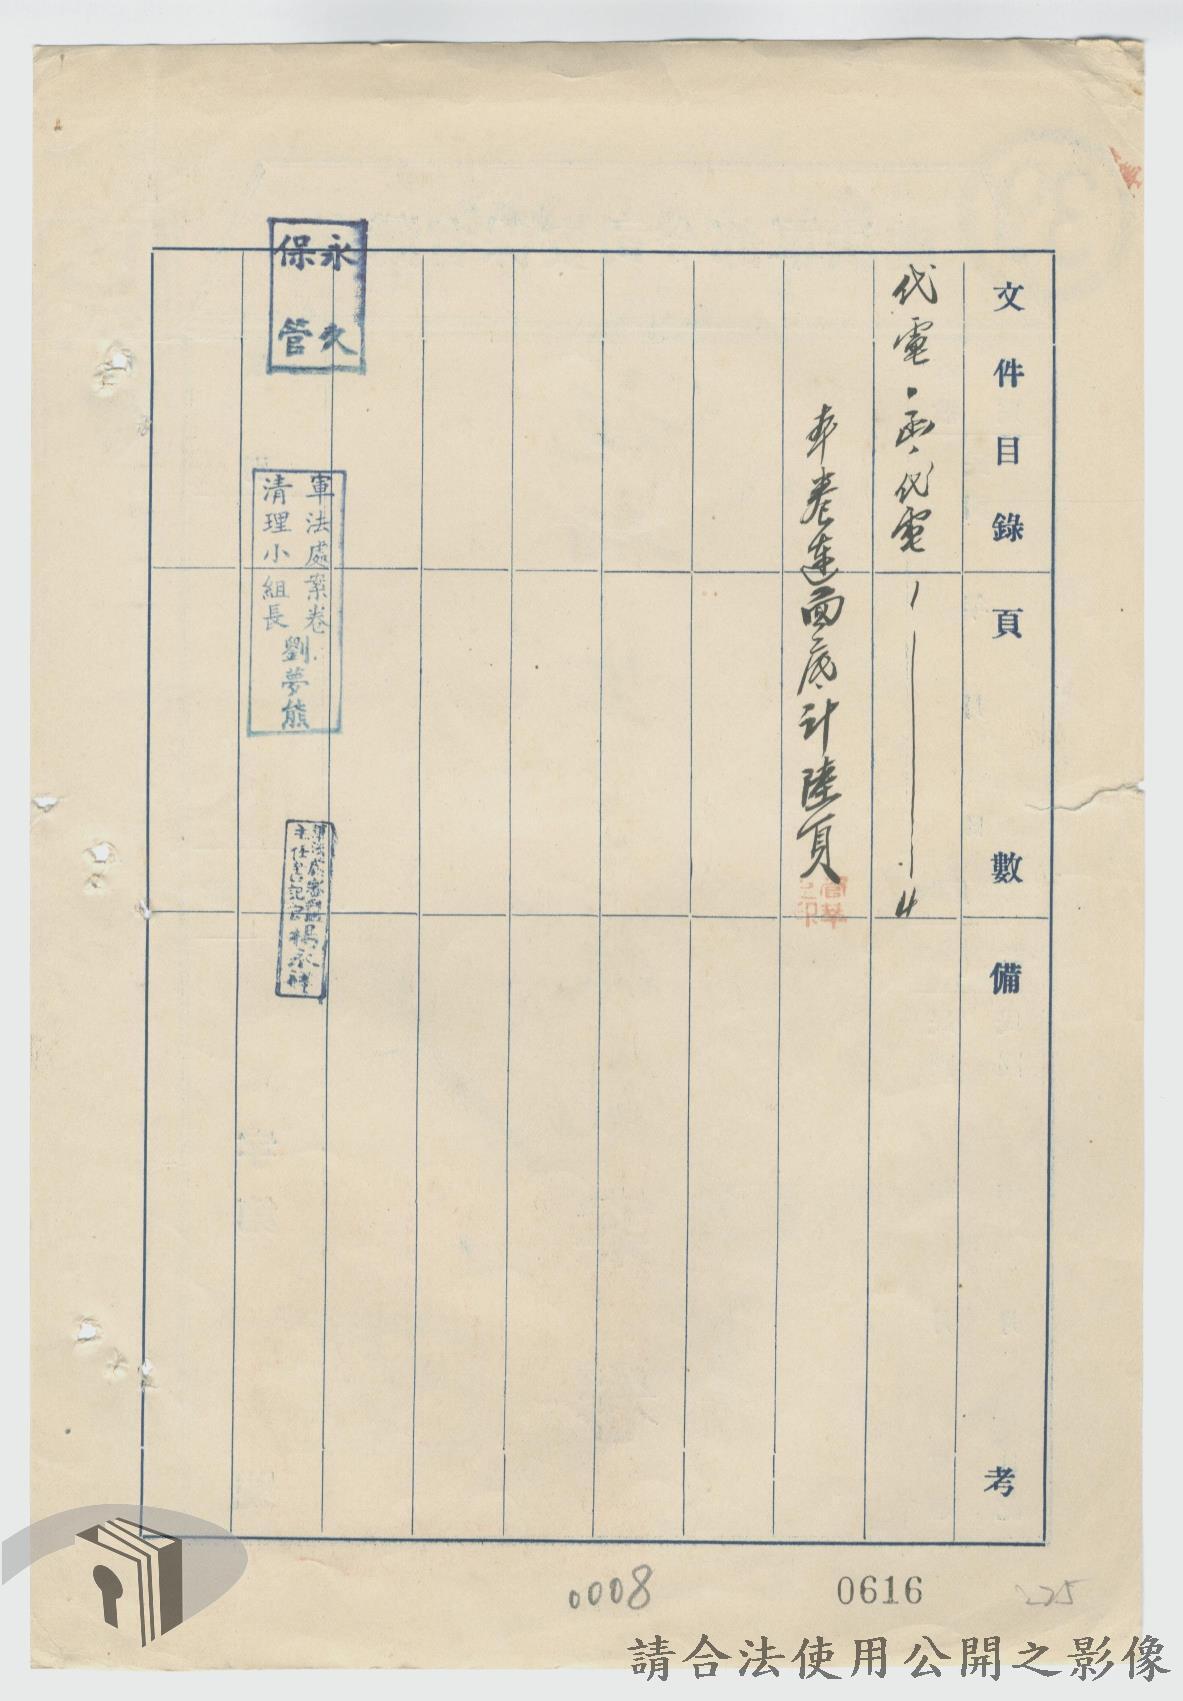 文件目錄 頁數 備考
代電、函、代電 1——4
本卷連面底計陸頁
永久
保管
軍法處案卷
清理小組長
劉夢熊
主任書記官楊永
0008
0616
225
請合法使用公開之影像